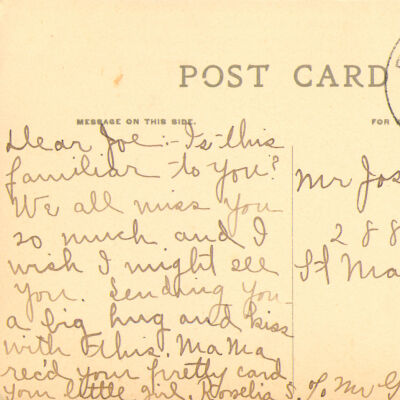 POST CARD
MESSAGE ON THIS SIDE.
FOR
Dear Joe:- Is this
familiar to you?
We all miss you
so much and I
wish I might see
you. Sending you
a big hug and kiss
with this. MaMa
rec'd your pretty card
your little girl, Roselia S. % Mr G
Mr Jos
288
St Ma